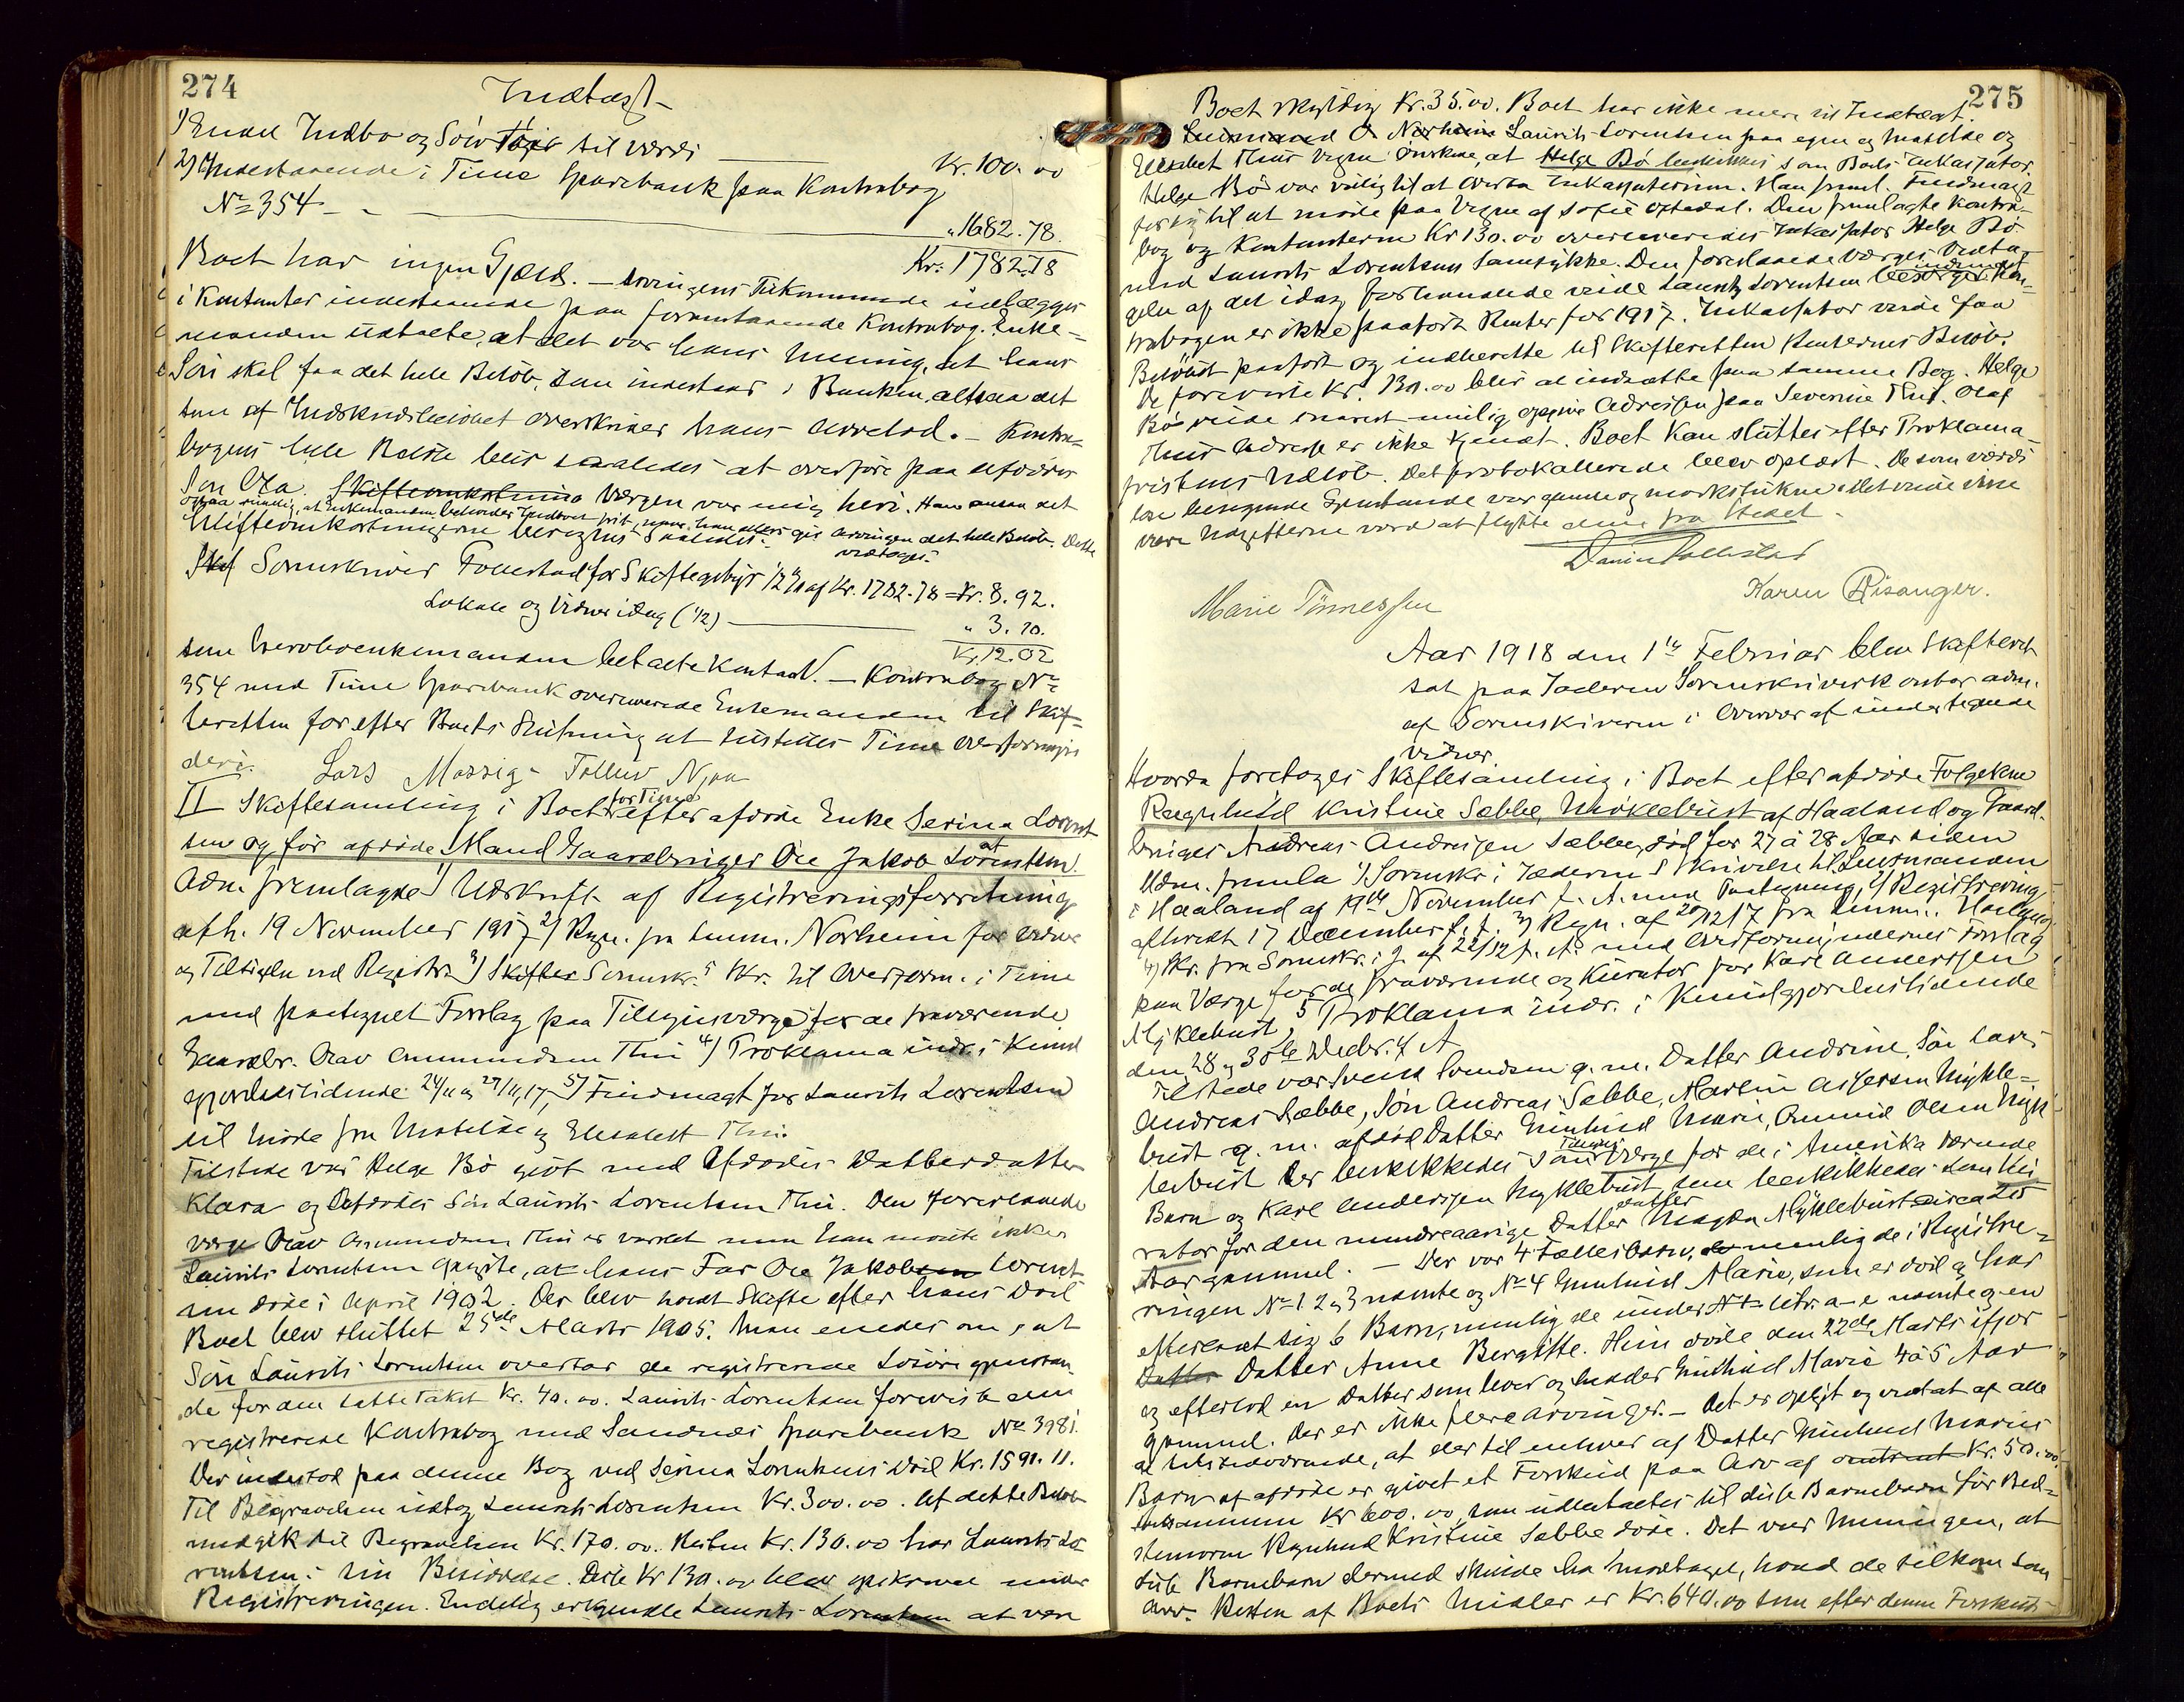 274
Indtægt
1) Endel Indbo og Söv Töier til værdi Kr. 100.00
2) Indestaaende i Time Sparebank paa Kontrabog
No 354 - - „ 1682.78
Kr. 1782.78
Boet har ingen Gjæld. — Arvingens Tilkommende indlægges
i Kontanter indestaaende paa foranstaaende Kontrabog. Enke-
manden udtalte, at det var hans Mening, at hans
Sön skal faa det hele Belöb, som indestaar i Banken, altsaa det
som af overskrider hans Arvelod. — Kontra-
bogens hele Belöb blir saaledes at overföre paa Afdödes
Sön Ola. Skifteomkostning Værgen var enig heri. Han ansaa det
ogsaa rimelig, at Enkemanden beholder Indboet frit, naar han ellers gir Arvingen det hele Belöb. Dette
Skifteomkostningerne beregnes saaledes: vedtoges.
Skif Sorenskriver Follestad for Skiftegebyr 1/2 % af Kr. 1782.78 = Kr. 8.92.
Lokale og Vidner idag (1/2) „ 3.10.
Kr. 12.02
som Enkemanden betalte Kontant. — Kontrabog No
354 med Time Sparebank overleverede Enkemanden til Skif-
teretten for efter Boets Slutning at tilstilles Time Overformyn-
deri. Lars Mossig - Tollev Njaa
II Skiftesamling i Boet for Time efter afdöde Enke Serina Lorent
sen og för afdöde Mand Gaardbruger Ole Jakob Lorentsen.
Adm. fremlagde 1) Udskrift af Registreringsforretning
afh. 19 November 1917 2) Regn. fra Lensm. Norheim for Vidner
og Tilsigelse ved Registr. 3) Skifter Sorenskr.s Skr. til Overform. i Time
med paategnet Forslag paa Tilsynsværge for de fraværende
Gaardbr. Olav Ommundsen Thu 4) Proklama indr. i Kund
gjörelsestidende 24/11 og 27/11, 17, 5) Fuldmagt for Laurits Lorentsen
til Möde fra Matilde og Elisabett Thu.
Tilstede var Helge Bö gift med Afdödes Datterdatter
Klara og Afdödes Sön Laurits Lorentsen Thu. Den foreslaaede
værge Olav Ommundsen Thu er varslet men han mödte ikke.
Laurits Lorentsen opgjste, at hans Far Ole Jakobsen Lorent
sen döde i April 1902. Der blev holdt Skifte efter hans Död
Boet blev sluttet 25de Marts 1905. Man enedes om, at
Sön Laurits Lorentsen overtar de registrerede Lösöregjenstan
de for den satte Takst Kr. 40.00. Laurits Lorentsen foreviste den
registrerede Kontrabog med Sandnes Sparebank No 3981.
Der indestod paa denne Bog ved Serina Lorentsens Död Kr. 1591.11.
Til Begravelsen udtog Laurits Lorentsen Kr. 300.00. Af dette Belöb
medgik til Begravelsen Kr. 170.00. Resten Kr. 130.00 har Laurits Lo
rentsen i sin Besiddelse. Disse Kr 130.00 blev opskrevet under
Registreringen. Endelig erkjendte Laurits Lorentsen at være
275
Boet skyldig Kr. 35.00. Boet har ikke mere til Indtægt.
Lensmand O. Norheim Laurits Lorentsen paa egne og Matilde og
Elisabet Thus Vegne önskede, at Helge Bö beskikkes som Boets Inkassator.
Helge Bö var villig til at overta Inkassationen. Han freml. Fuldmagt
for sig til at möde paa Vegne af Sofie Opstedal. Den fremlagte Kontra-
bog og Kontanterne Kr 130.00 overleveredes Inkassator Helge Bö
med Laurits Lorentsens Samtykke. Den foreslaaede Værges Vedta-
gelse af det idag forhandlede vilde Laurits Lorentsen besörge indhentet. Kon-
trabogen er ikke paafört Renter for 1917. Inkassator vilde faa
Belöbet paafört og indberette til Skifteretten Renternes Belöb.
De foreviste Kr. 130.00 blir at indsætte paa samme Bog. Helge
Bö vilde snarest mulig opgive Adressen paa Severine Thu. Olaf
Thus Adresse er ikke kjendt. Boet kan sluttes efter Proklama-
fristens Udlöb. Det protokollerede blev oplæst. De som værdi
löse Gjenstande var gamle og markstukne. Det vilde ikke
være Udgifterne værd at flytte dem fra Stedet.
Daniel Follestad
Marie Tönnessen Karen Risanger.
Aar 1918 den 1ste Februar blev Skifteret
sat paa Jæderens Sorenskriverkontor adm.
af Sorenskriveren i Overvær af undertegnede
Vidner.
Hvorda foretoges Skiftesamling i Boet efter afdöde Folgekone
Ragnhild Kristine Sæbbe, Myklebust af Haaland og Gaard-
bruger Andreas Andersen Sæbbe, död for 27 à 28 Aar siden
Adm. fremla 1) Sorenskr. i Jæderens Skrivelse til Lensmanden
i Haaland af 19de November f. A. med Paategning, 2) Registrering
afholdt 17 December f. A. 3) Regn. af 20/12 17 fra Lensm. i Haaland,
4) Skr. fra Sorenskr. i J. af 22/12 f. A. med Overformyndernes Forslag
paa Værge for de fraværende og Kurator for Karl Anderssen
Myklebust, 5 Proklama indr. i Kundgjörelsestidende
den 28 og 31te Decbr. f A
Tilstede var Svend Svendsen g. m. Datter Andrine, Sön Lars
Andreas Sæbbe, Sön Andreas Sæbbe, Martin Asjersen Mykle-
bust g. m. afdöd Datter Gunhild Marie, Ommund Olsen Myk
lebust der beskikkedes som Tilsyns Værge for de i Amerika værende
Barn og Karl Anderssen Myklebust som beskikkedes som Ku
rator for den mindreaarige Datter datter Magda Myklebust circa 20
Aar gammel. — Der var 4 Fællesbarn, de nemlig de i Registre-
ringen No 1 2 og 3 nævnte og No 4 Gunhild Marie, som er död og har
efterlatt sig 6 Barn, nemlig de under No 4 litra a-e nævnte og en
Datter Datter Anne Bergitte. Hun döde den 22de Marts ifjor
og efterlod en Datter som lever og heder Gunhild Marie 4 à 5 Aar
gammel. Der er ikke flere Arvinger. — Det er oplyst og vedtat af alle
de tilstedeværende, at der til enhver af Datter Gunhild Maries
Barn af afdöde er givet et Forskud paa Arv af omtrent Kr. 50.00.
tilsammen Kr 600.00, som udbetaltes til disse Barnebarn för Bed-
stemoren Ragnhild Kristine Sæbbe döde. Det var Meningen, at
disse Barnebarn dermed skulde ha modtaget, hvad de tilkom som
Arv. Resten af Boets Midler er Kr. 640.00 som efter denne Forskuds